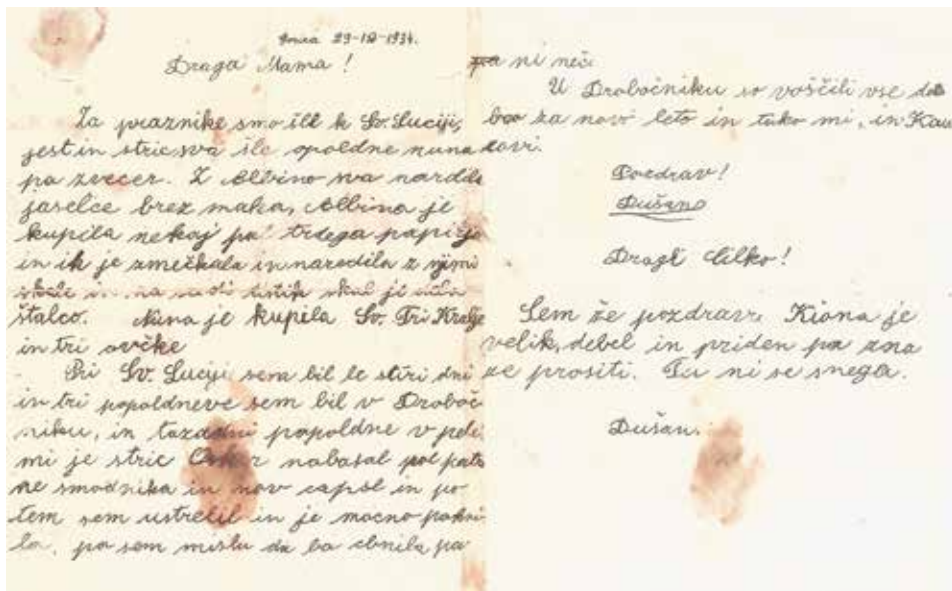 29-12-1934.
Draga Mama!
Za praznike smo šli k Sv. Luciji,
jest in stric sva šle opoldne nuna
pa zvečer. Z Albino sva nardila
jaselce brez maka, Albina je
kupila nekaj pol trdega papirja
in ih je zmečkala in naredila z njimi
skale in na sredi tistih skal je
štalco. Nuna je kupila Sv. Tri Kralje
in tri ovčke
Pri Sv. Luciji sem bil le štiri dni
in tri popoldneve sem bil v Droboč
niku, in tazadni popoldne v
mi je stric nabasal pol pato
ne smodnika in nov capsl in po
tem sem ustrelil in je močno pokni
la, pa sem mislu da bo pa
pa ni neč.
U Drobočniku so voščili vse do
bro za novo leto in tako mi, in Kau
čovi.
Pozdrav!
Dušan
Dragi Milko!
Lem že pozdrav. Kiona je
velik, debel in priden pa zna
že prositi. Tu ni še snega.
Dušan.